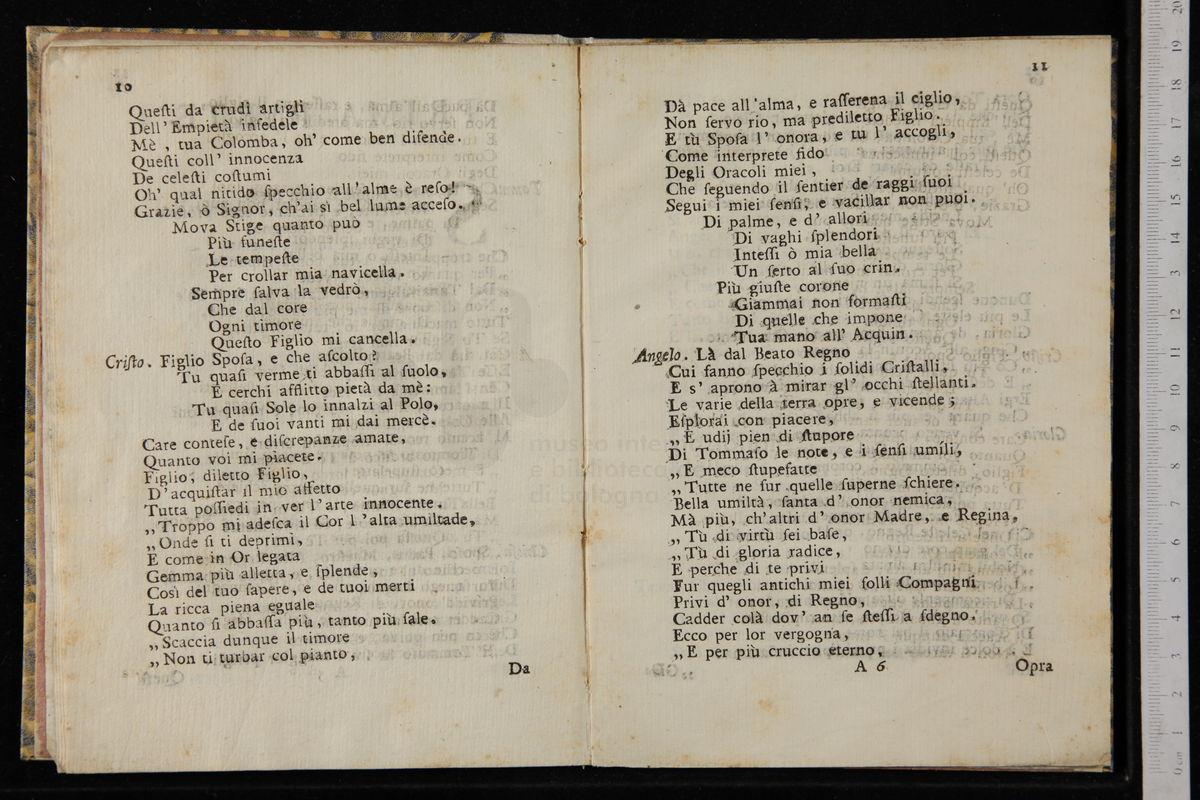 10
Queſti da crudi artigli
Dell' Empietà infedele
Mè, tua Colomba, oh' come ben difende.
Queſti coll' innocenza
De celeſti coſtumi
Oh' qual nitido ſpecchio all'alme è reſo!
Grazie, ò Signor, ch'ai sì bel lume acceſo.
Mova Stige quanto può
Più funeſte
Le tempeſte
Per crollar mia navicella.
Sempre ſalva la vedrò,
Che dal core
Ogni timore
Queſto Figlio mi cancella.
Criſto. Figlio Spoſa, e che aſcolto?
Tu quaſi verme ti abbaſſi al ſuolo,
E cerchi afflitto pietà da mè:
Tu quaſi Sole lo innalzi al Polo,
E de ſuoi vanti mi dai mercè.
Care conteſe, e diſcrepanze amate,
Quanto voi mi piacete.
Figlio, diletto Figlio,
D'acquiſtar il mio affetto
Tutta poſſiedi in ver l'arte innocente.
„Troppo mi adeſca il Cor l'alta umiltade,
„Onde ſi ti deprimi,
E come in Or legata
Gemma più alletta, e ſplende,
Così del tuo ſapere, e de tuoi merti
La ricca piena eguale
Quanto ſi abbaſſa più, tanto più ſale.
„Scaccia dunque il timore
„Non ti turbar col pianto,
Da
11
Dà pace all'alma, e raſſerena il ciglio,
Non ſervo rio, ma prediletto Figlio.
E tù Spoſa l' onora, e tu l' accogli,
Come interprete fido
Degli Oracoli miei,
Che ſeguendo il ſentier de raggi ſuoi
Segui i miei ſenſi, e vacillar non puoi.
Di palme, e d' allori
Di vaghi ſplendori
Inteſſi ò mia bella
Un ſerto al ſuo crin.
Più giuſte corone
Giammai non formaſti
Di quelle che impone
Tua mano all' Acquin.
Angelo. Là dal Beato Regno
Cui fanno ſpecchio i ſolidi Criſtalli,
E s' aprono à mirar gl' occhi ſtellanti.
Le varie della terra opre, e vicende;
Eſplorai con piacere,
„E udij pien di ſtupore
Di Tommaſo le note, e i ſenſi umili,
„E meco ſtupefatte
„Tutte ne fur quelle ſuperne ſchiere.
Bella umiltà, ſanta d' onor nemica,
Mà più, ch'altri d' onor Madre, e Regina,
„Tù di virtù ſei baſe,
„Tù di gloria radice,
E perche di te privi
Fur quegli antichi miei folli Compagni
Privi d' onor, di Regno,
Cadder colà dov' an ſe ſteſſi a ſdegno.
Ecco per lor vergogna,
„E per più cruccio eterno,
A 6
Opra